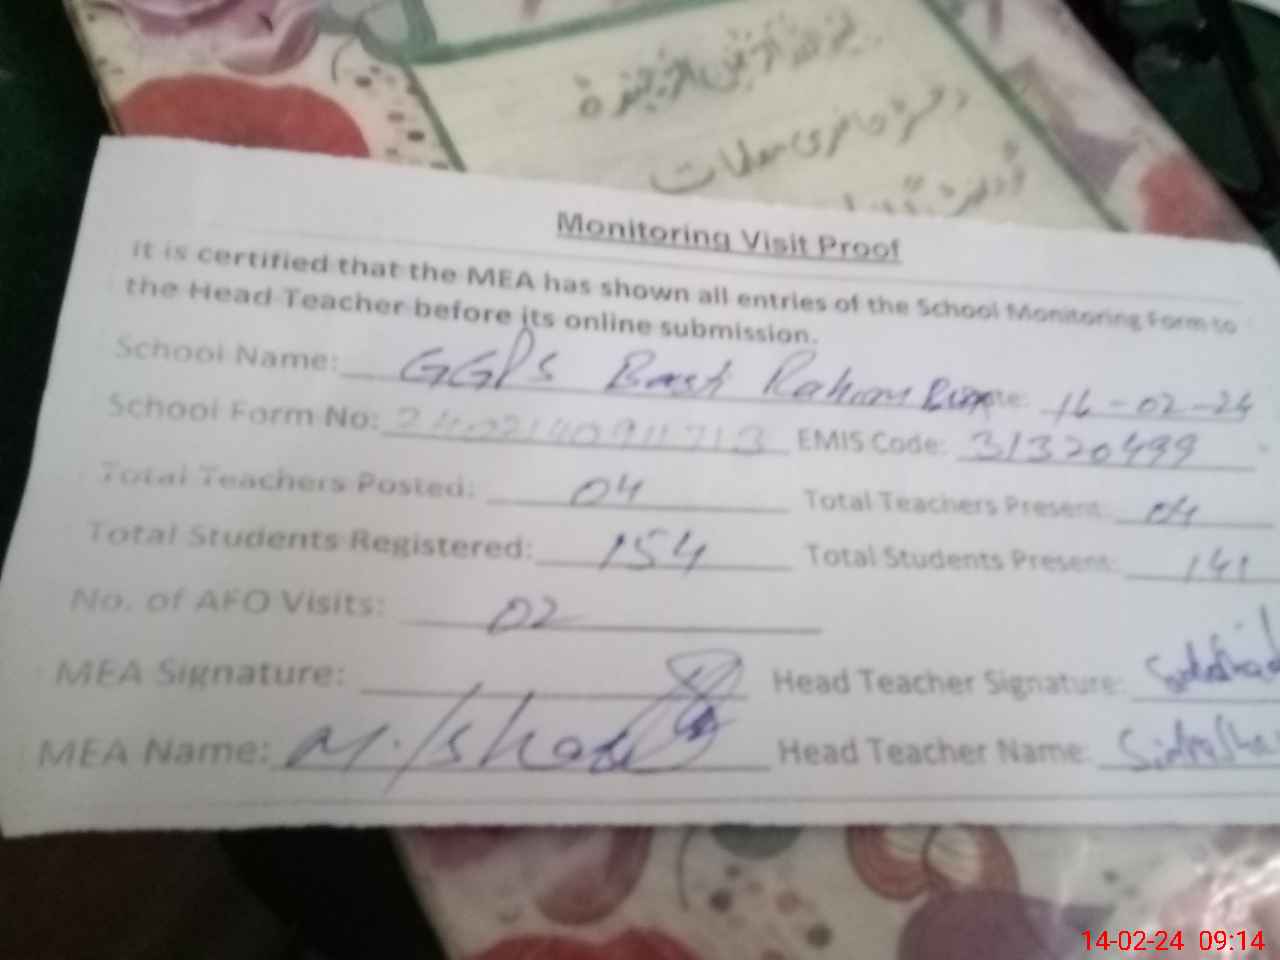 دفتری معلمات
Monitoring Visit Proof
It is certified that the MEA has shown all entries of the School Monitoring Form to
the Head Teacher before its online submission.
School Name: GGPS Basti Rahim Bux Date: 14-02-24
School Form No: EMIS Code: 31320499
Total Teachers Posted: 04 Total Teachers Present: 04
Total Students Registered: 154 Total Students Present: 141
No. of AFO Visits: 02
MEA Signature: Head Teacher Signature:
MEA Name: M. Ishaq Head Teacher Name:
14-02-24 09:14